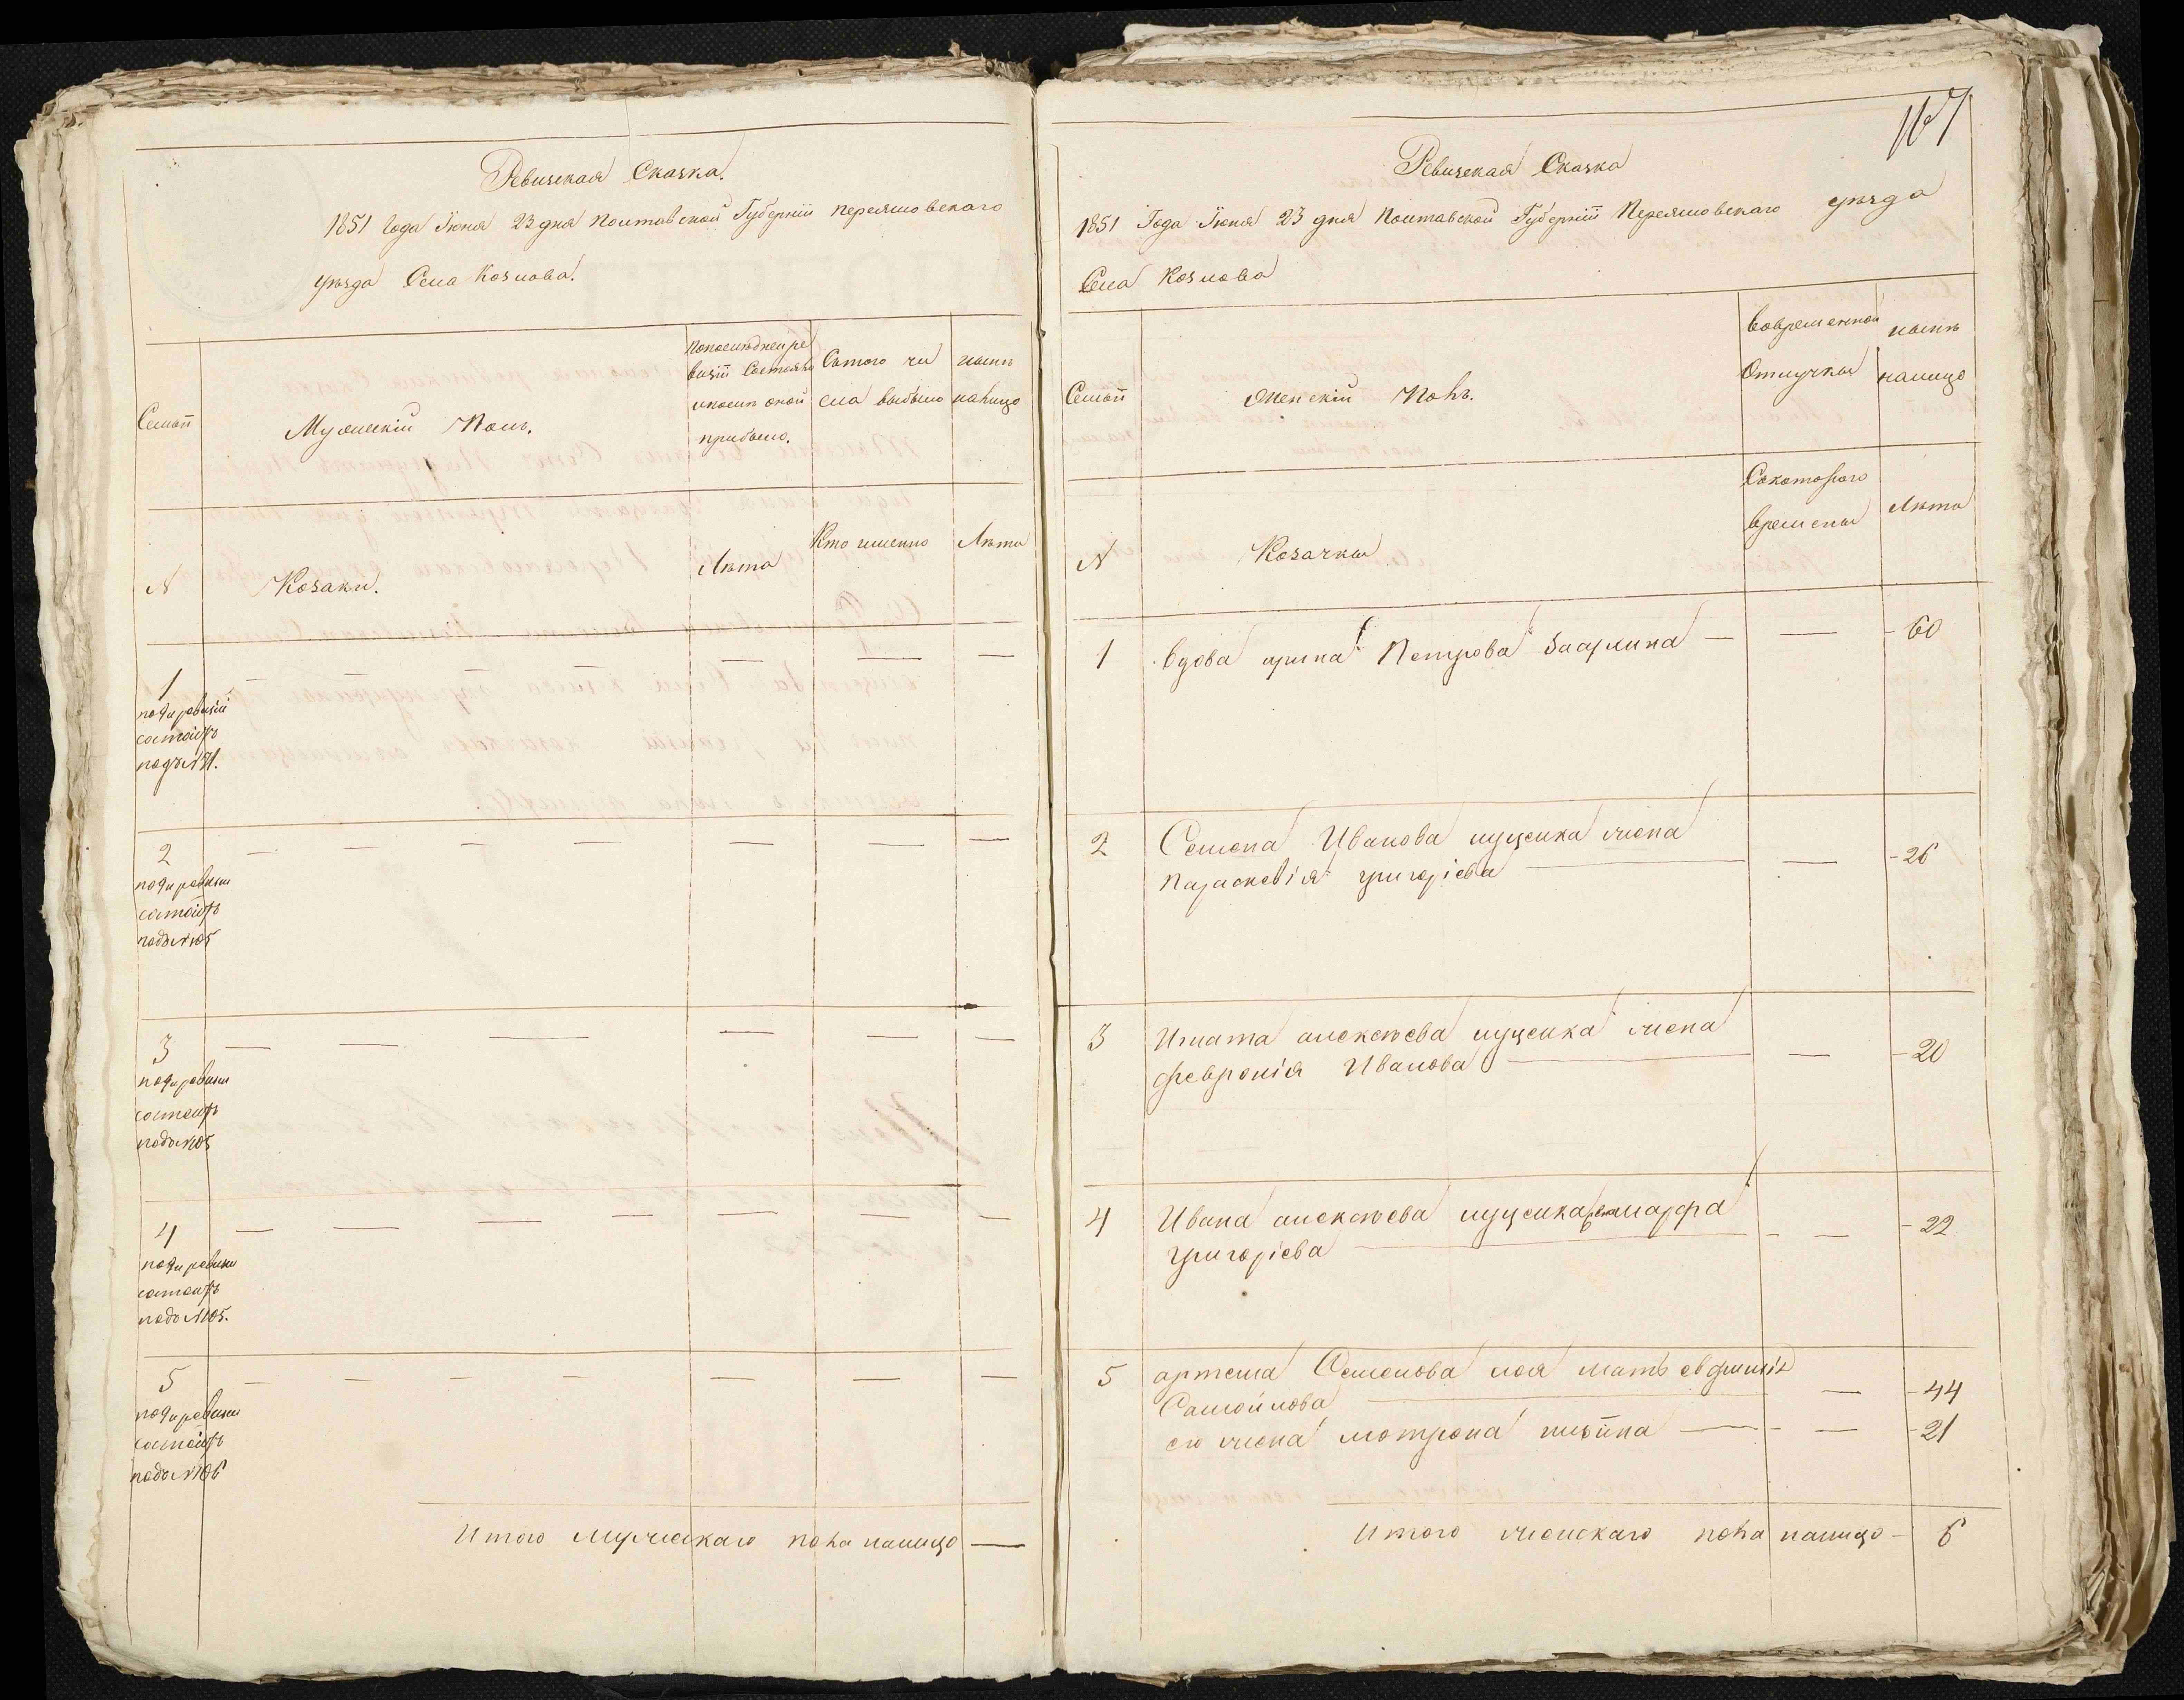 Ревизская Сказка.
1851 Года Июня 23 дня Полтавской Губерніи Переясловскаго
уѣзда Села Козлова.
Семьи
Мужескій Полъ.
По последней ре
визіи Состояло
и после оной
прибыло.
Съ того чи
сла выбыло
нынѣ
налицо
№
Козаки.
Лѣта
Кто именно
Лѣта
1
по 9й ревизіи
состоитъ
подъ №
2
по 9й ревизіи
состоитъ
подъ № 105
3
по 9й ревизіи
состоитъ
подъ № 105
4
по 9й ревизіи
состоитъ
подъ № 105.
5
по 9й ревизіи
состоитъ
подъ № 106
Итого мужескаго пола налицо —
167
Ревизская Сказка
1851 Года Июня 23 дня Полтавской Губерніи Переясловскаго уѣзда
Села Козлова
Семьи
Женскій Полъ.
Вовременной
Отлучки
нынѣ
налицо
№
Козачки
Скотораго
времены
Лѣта
1 вдова ирина Петрова — — 60
2 Семена Иванова луценка жена
Парасковія григоріева — — 26
3 Игната алексѣева луценка жена
февронія Иванова — — 20
4 Ивана алексѣева луценка жена марфа
григоріева — — 22
5 артема Семенова мать евфимія
Самойлова — — 44
его жена мотрона — — 21
Итого женскаго пола налицо — 6